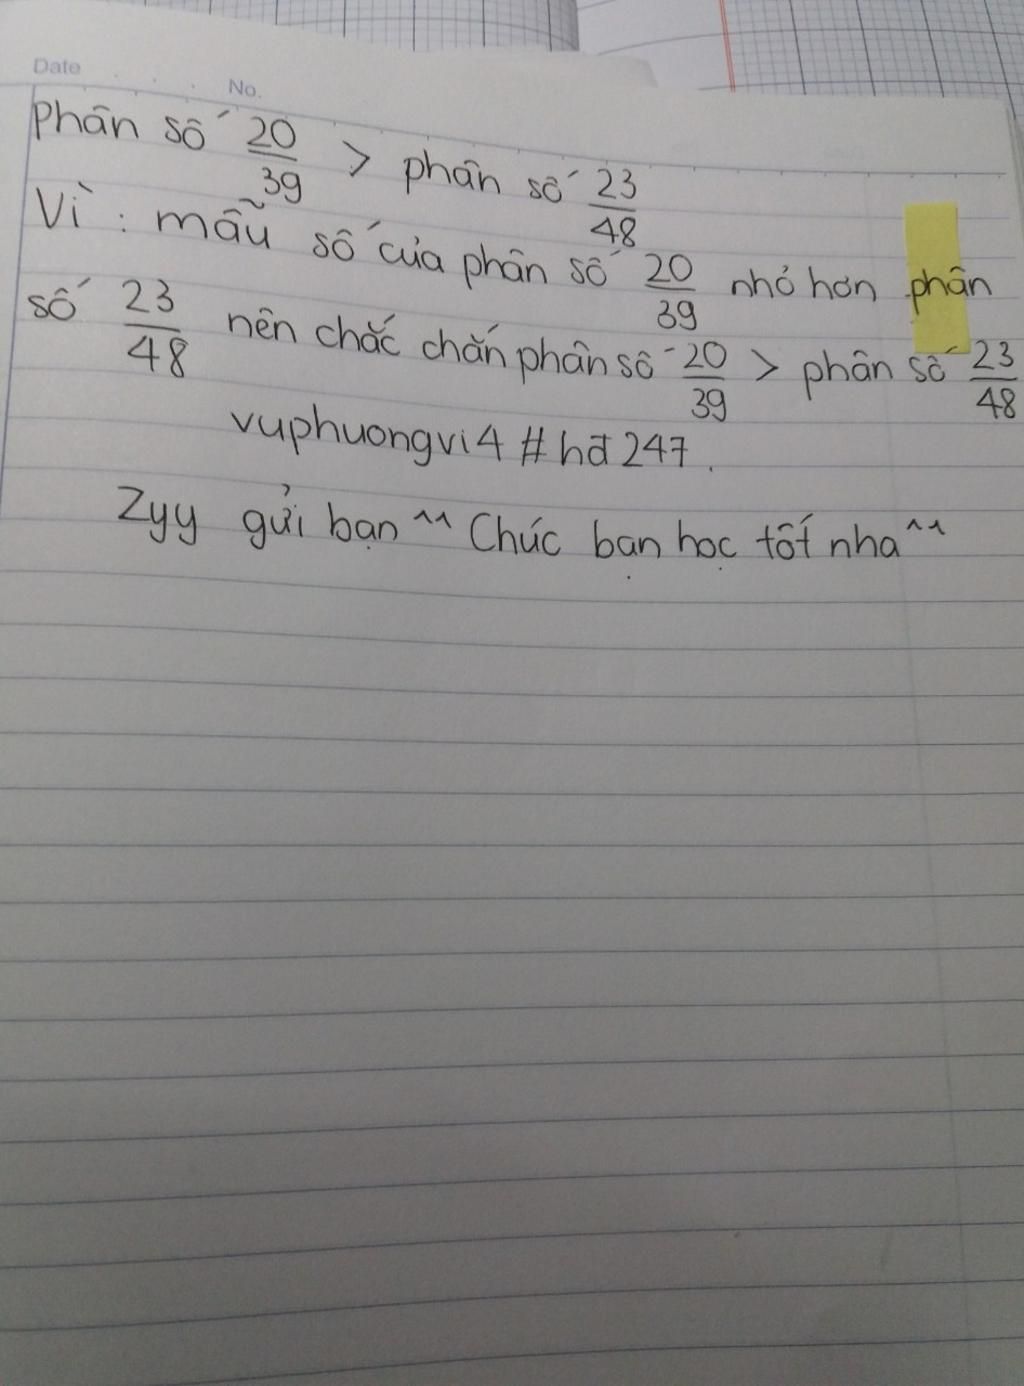 Date
No.
Phân số 20/39 > phân số 23/48
Vì : mẫu số của phân số 20/39 nhỏ hơn phân
số 23/48 nên chắc chắn phân số 20/39 > phân số 23/48
vuphuongvi4 # hđ 247.
Zyy gửi bạn ^^ Chúc bạn học tốt nha ^^